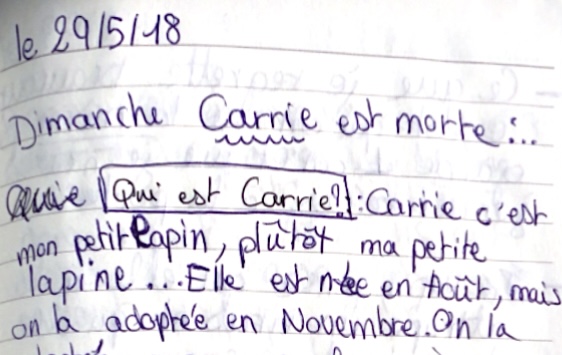 le 29/5/18
Dimanche Carrie est morte :..
Qui est Carrie? : Carrie c'est
mon petit lapin, plûtôt ma petite
lapine ... Elle est née en Août, mais
on la adoptée en Novembre. On la